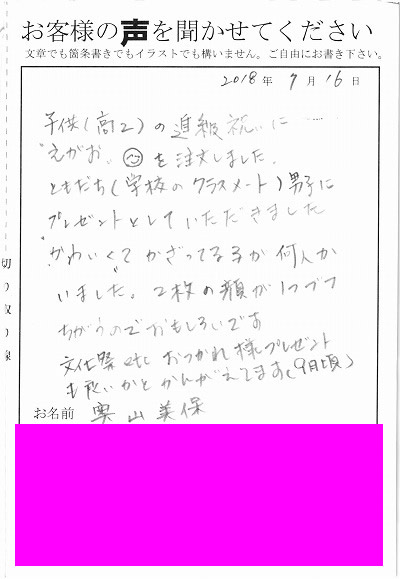 お客様の声を聞かせてください
文章でも箇条書きでもイラストでも構いません。ご自由にお書き下さい。
2018年 7月 16日
子供(高2)の進級祝いに……
"えがお"☺を注文しました。
ともだち(学校のクラスメート)男子に
プレゼントとしていただきました
"かわいくて"かざってる子が何人か
いました。2枚の顔が1つづつ
ちがうのでおもしろいです
文化祭etcおつかれ様プレゼント
も良いかとかんがえてます(9月頃)
お名前 奥山美保
切り取り線